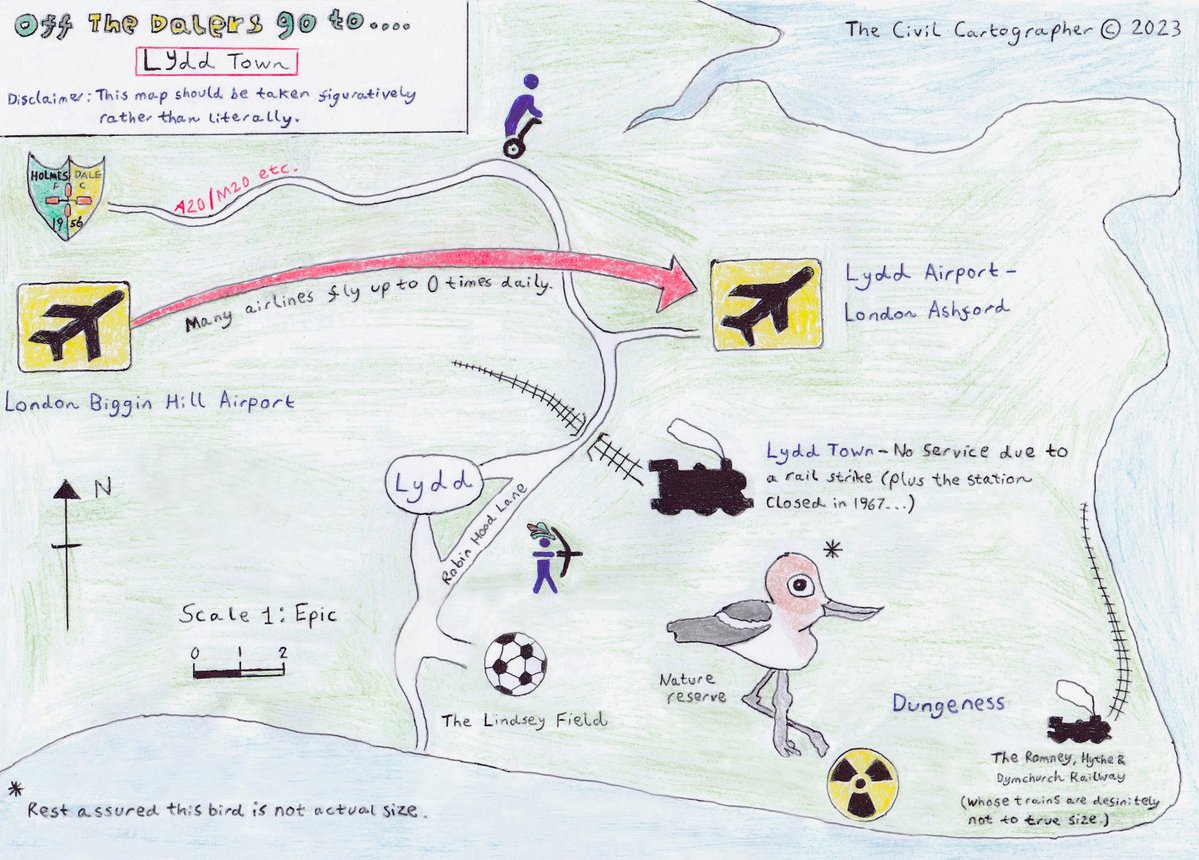 Off The Dalers go to....
Lydd Town
Disclaimer: This map should be taken figuratively
rather than literally.
The Civil Cartographer © 2023
HOLMES DALE
F C
19 56
A20/M20 etc.
Many airlines fly up to 0 times daily.
Lydd Airport-
London Ashford
London Biggin Hill Airport
N
Lydd Town - No service due to
a rail strike (plus the station
closed in 1967...)
Lydd
Robin Hood Lane
*
Scale 1: Epic
0 1 2
Nature
reserve
Dungeness
The Lindsey Field
The Romney, Hythe &
Dymchurch Railway
(whose trains are definitely
not to true size.)
* Rest assured this bird is not actual size.